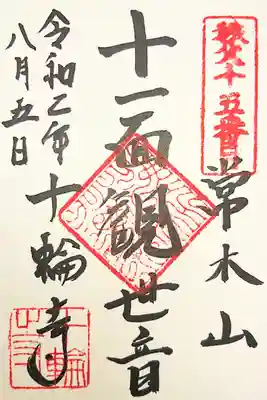 十五番
常木山
十一面観世音
令和二年
八月五日
十輪寺